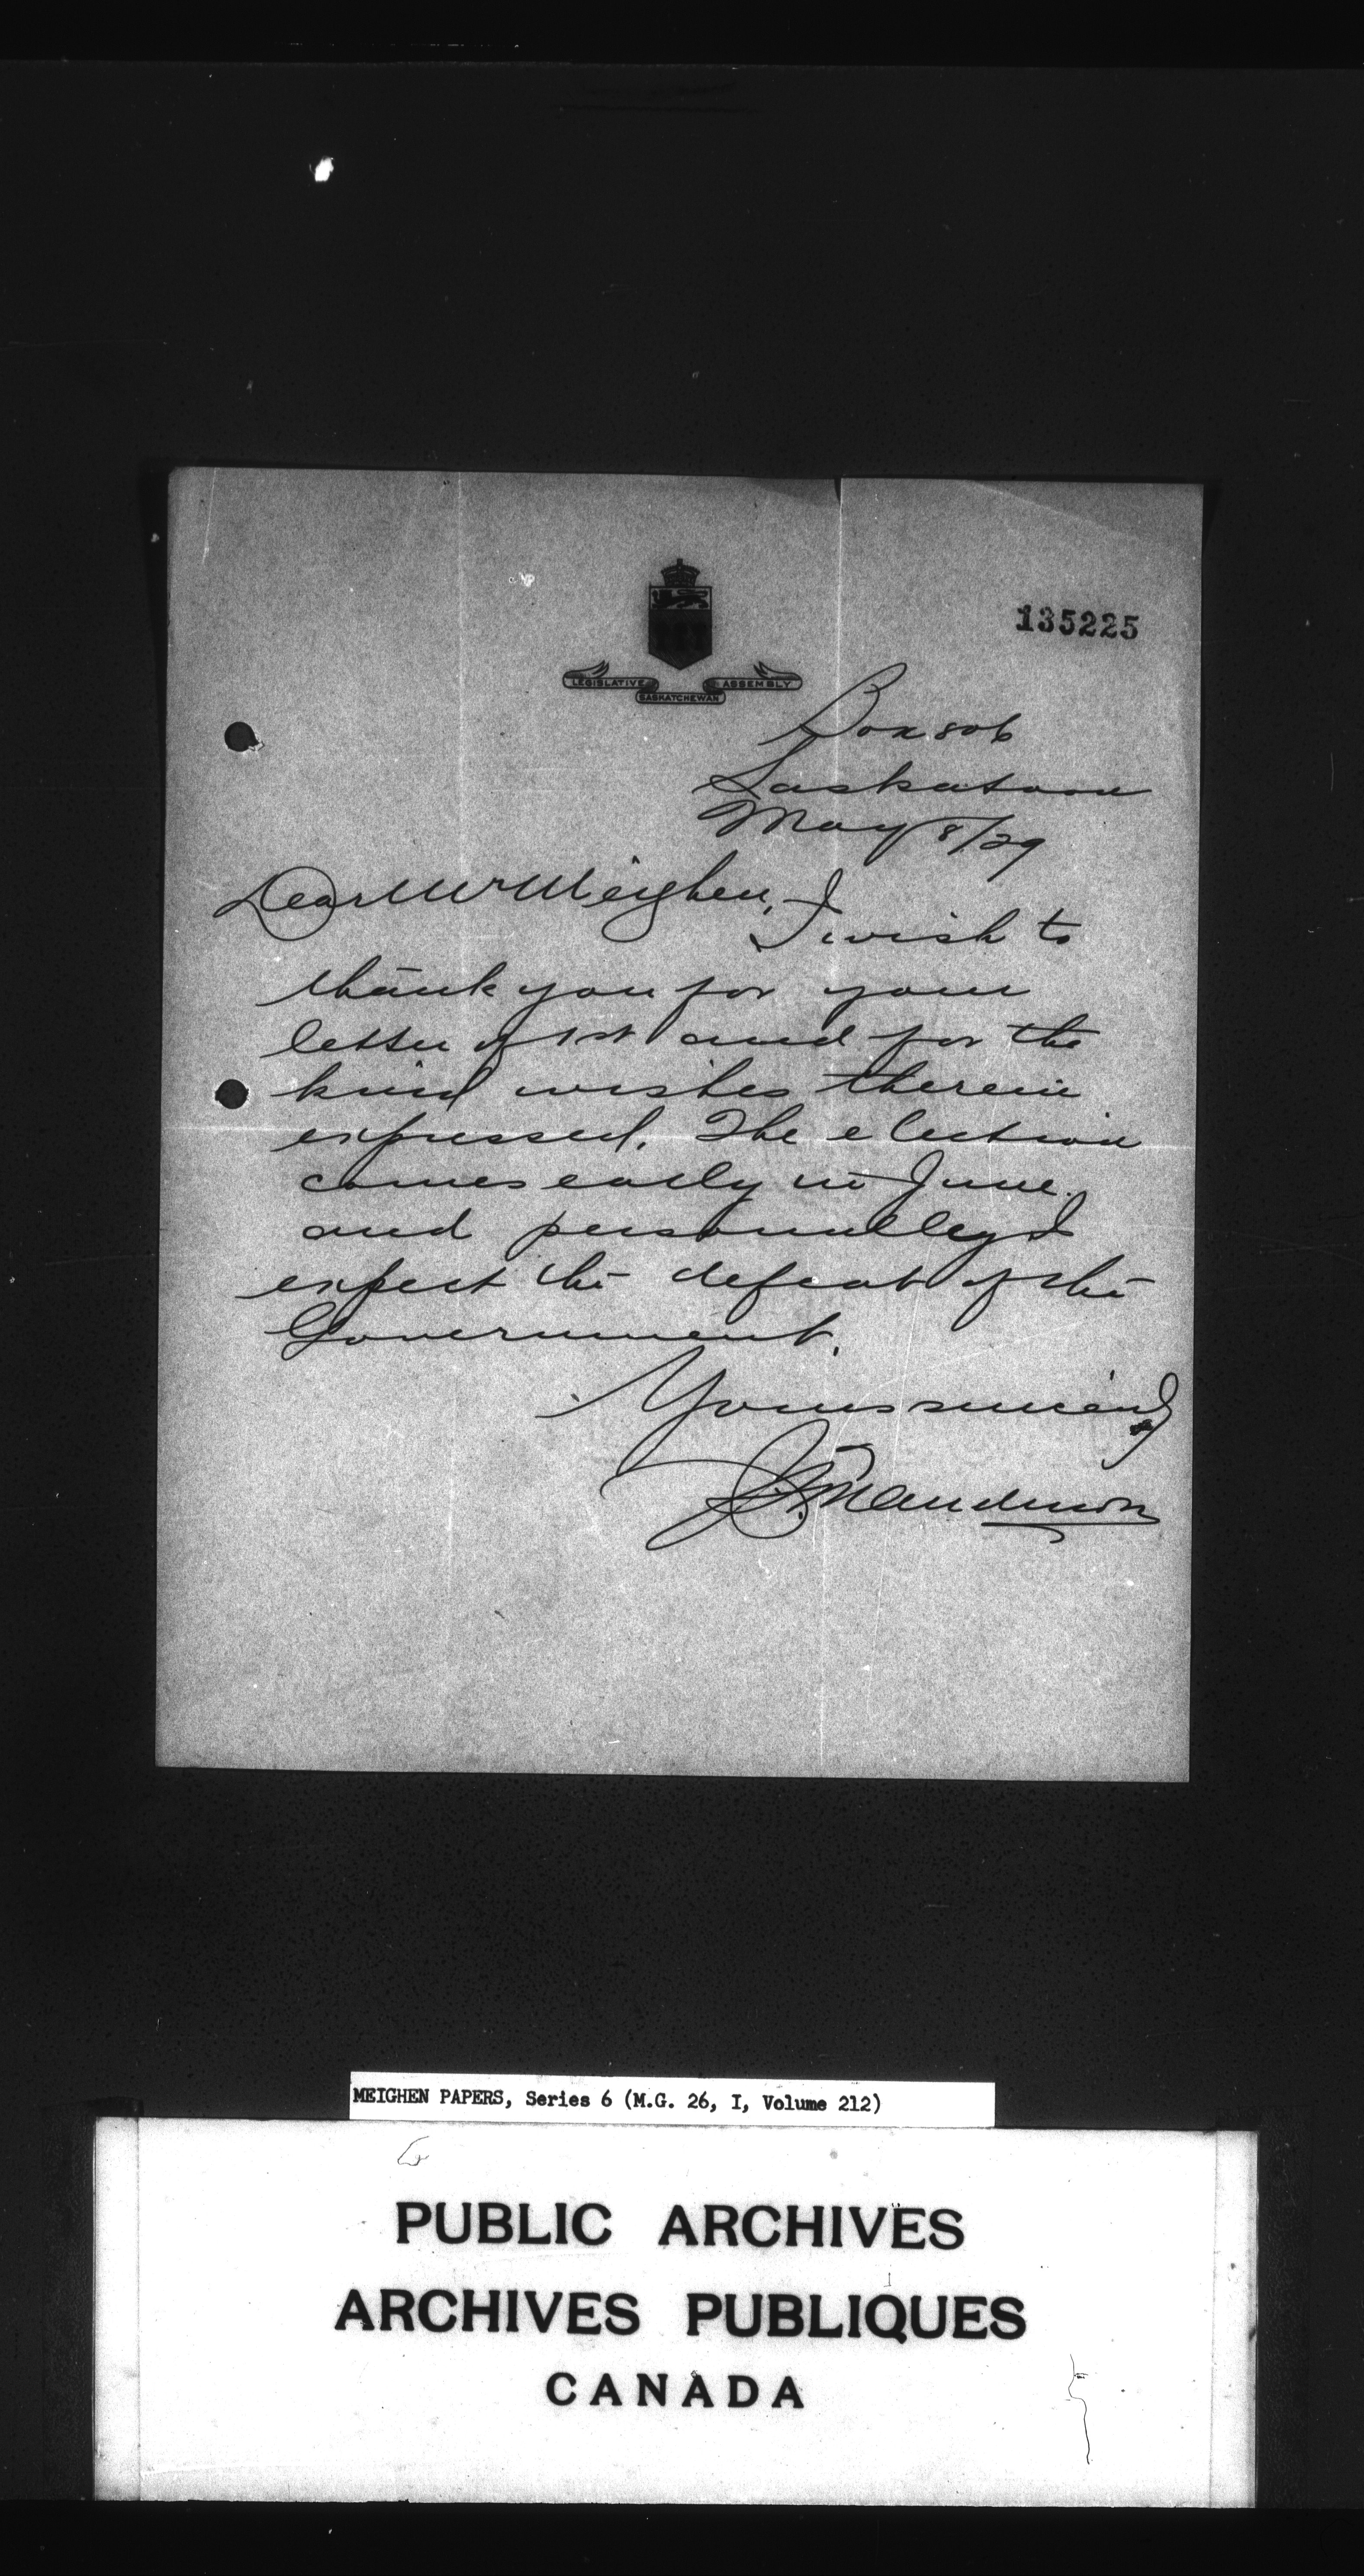 135225
LEGISLATIVE ASSEMBLY
SASKATCHEWAN
Box 806
Saskatoon
May 8/29
Dear Mr Meighen,
I wish to
thank you for your
letter of 1st and for the
kind wishes therein
expressed. The election
comes early in June
and personally I
expect the defeat of the
Government.
Yours sincerely
J.T.M. Anderson
MEIGHEN PAPERS, Series 6 (M.G. 26, I, Volume 212)
PUBLIC ARCHIVES
ARCHIVES PUBLIQUES
CANADA